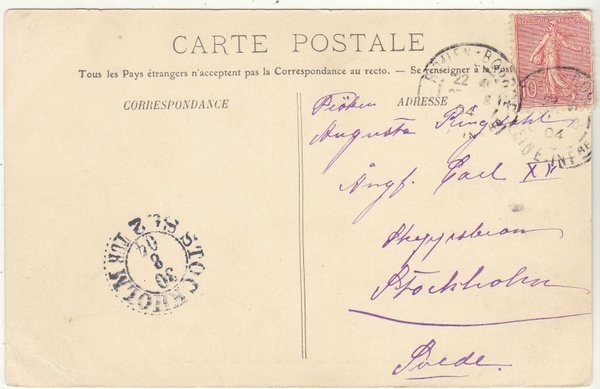 CARTE POSTALE
Tous les Pays étrangers n'acceptent pas la Correspondance au recto. — Se renseigner à la
CORRESPONDANCE
ADRESSE
Fröken
Augusta Ringdahl
Ångf. Carl XV
Skeppsbron
Stockholm
Suède.
STOCKHOLM
2 TUR
30
8
04
10
22
04